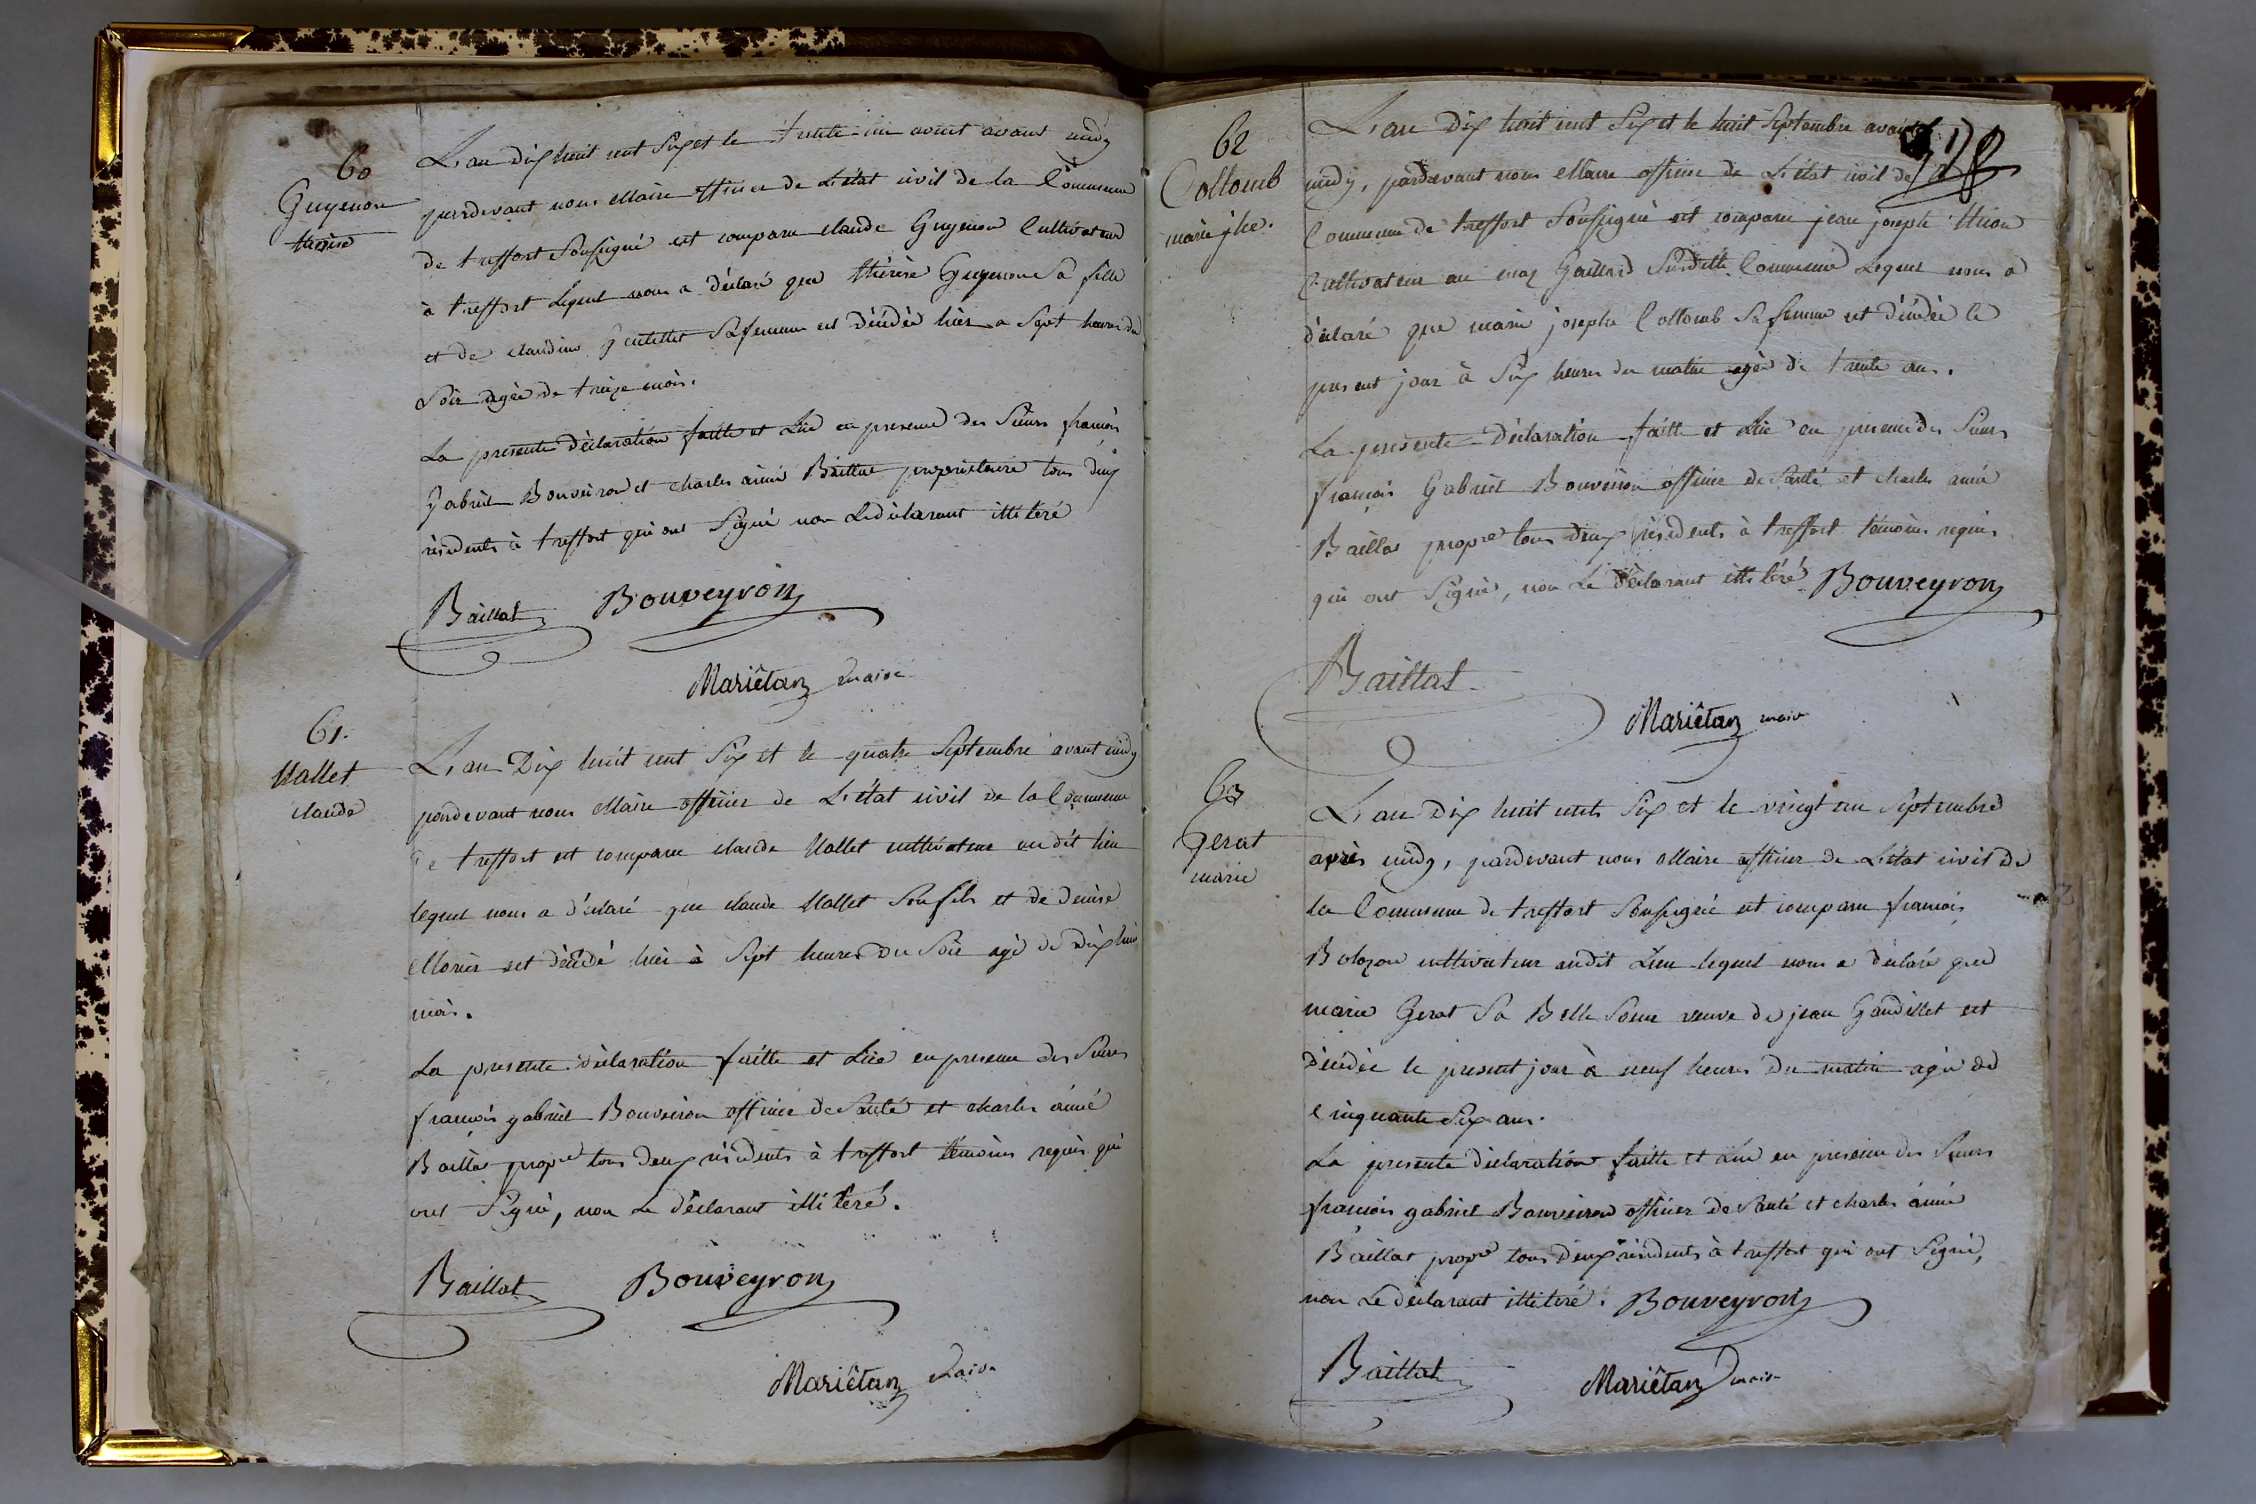 60
Guyenon
thérèse
L'an dix huit cent Six et le trente un aout avant midy
pardevant nous Maire officier de L'état civil de la Commune
de treffort Soussigné est comparu claude Guyenon Cultivateur
à treffort Lequel nous a déclaré que thérèse Guyenon Sa fille
et de claudine Sa femme est décédée hier a Sept heures du
Soir agée de treize mois.
La presente déclaration faitte et Lüe en presence des Sieurs françois
gabriel Bouveiron et charles aimé Baillat proprietaire tous deux
résidents à treffort qui ont Signé non Le déclarant illiteré
Baillat Bouveyron
Mariêtan maire
61.
Mallet
claude
L'an Dix huit cent Six et le quatre Septembre avant midy
pardevant nous Maire officier de L'état civil de la Commune
de treffort est comparu claude Mallet cultivateur au dit lieu
lequel nous a déclaré que claude Mallet Son fils et de denise
Morier est décédé hier à Sept heures du Soir agé de dix huit
mois.
La presente déclaration faitte et Lüe en presence des Sieurs
françois gabriel Bouveiron officier de Santé et charles aimé
Baillat propre tous deux résidents à treffort témoins requis qui
ont Signé, non Le déclarant illiteré.
Baillat Bouveyron
Mariêtan Maire
62
Collomb
marie jhe.
L'an Dix huit cent Six et le huit Septembre avant
midy, pardevant nous Maire officier de L'état civil de la
Commune de treffort Soussigné est comparu jean joseph
Cultivateur au maz Gaillard Susditte Commune Lequel nous a
déclaré que marie josephe Collomb Sa femme est décédée le
present jour à Six heures du matin agée de trente ans.
La presente Déclaration faitte et Lüe en presence des Sieurs
françois Gabriel Bouveiron officier de Santé et charles aimé
Baillat propre tous deux résidents à treffort témoins requis
qui ont Signé, non Le déclarant illiteré Bouveyron
Baillat
Mariêtan maire
63
Gerat
marie
L'an Dix huit cent Six et le vingt un Septembre
après midy, pardevant nous Maire officier de L'état civil de
la Commune de treffort Soussigné est comparu françois
Bolozon cultivateur audit Lieu lequel nous a déclaré que
marie Gerat Sa Belle Soeur veuve de jean Gandillet est
décédée le present jour à neuf heures du matin agée de
Cinquante Six ans.
La presente déclaration faitte et Lüe en presence des Sieurs
françois gabriel Bouveiron officier de Santé et charles aimé
Baillat propre tous deux résidents à treffort qui ont Signé,
non Le déclarant illiteré. Bouveyron
Baillat Mariêtan maire